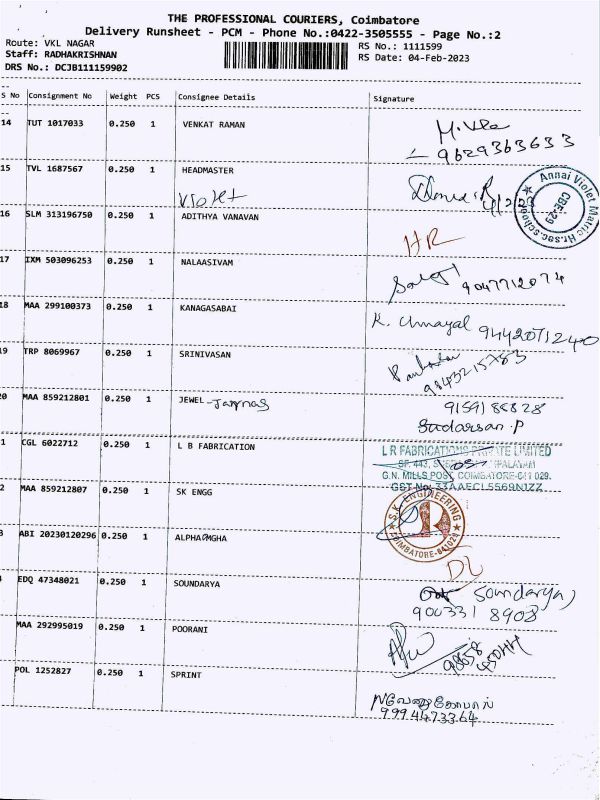 THE PROFESSIONAL COURIERS, Coimbatore
Delivery Runsheet - PCM - Phone No.:0422-3505555 - Page No.:2
Route: VKL NAGAR
RS No.: 1111599
Staff: RADHAKRISHNAN
RS Date: 04-Feb-2023
DRS No.: DCJB111159902
S No Consignment No Weight PCS Consignee Details Signature
14 TUT 1017033 0.250 1 VENKAT RAMAN
9629363633
15 TVL 1687567 0.250 1 HEADMASTER
Violet
Annai Violet Matric Hr.Sec.School
CBE-29
16 SLM 313196750 0.250 1 ADITHYA VANAVAN
HR
17 IXM 503096253 0.250 1 NALAASIVAM
9047712074
18 MAA 299100373 0.250 1 KANAGASABAI
K. Umayal 9442071240
19 TRP 8069967 0.250 1 SRINIVASAN
9843215783
20 MAA 859212801 0.250 1 JEWEL
Sudarsan.P
1 CGL 6022712 0.250 1 L B FABRICATION
L R FABRICATIONS PRIVATE LIMITED
SF. 443,
G.N. MILLS POST, COIMBATORE-641 029.
GST No: 33AAECL5569N1ZZ
2 MAA 859212807 0.250 1 SK ENGG
S.K. ENGINEERING
COIMBATORE-641029
3 ABI 20230120296 0.250 1 ALPHAOMGHA
4 EDQ 47348021 0.250 1 SOUNDARYA
Soundarya
900331 8908
MAA 292995019 0.250 1 POORANI
POL 1252827 0.250 1 SPRINT
வேணுகோபால்
9994473364